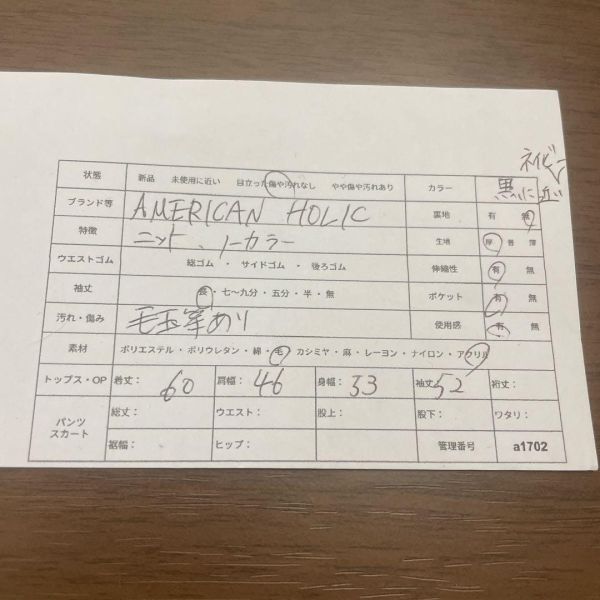 ネイビー
状態 新品 未使用に近い 目立った傷や汚れなし やや傷や汚れあり カラー 黒に近い
ブランド等 AMERICAN HOLIC 裏地 有 無
特徴 ニット、ノーカラー 生地 厚 普 薄
ウエストゴム 総ゴム ・ サイドゴム ・ 後ろゴム 伸縮性 有 無
袖丈 長・七〜九分・五分・半・無 ポケット 有 無
汚れ・傷み 毛玉等あり 使用感 有 無
素材 ポリエステル・ポリウレタン・綿・毛・カシミヤ・麻・レーヨン・ナイロン・アクリル
トップス・OP 着丈: 60 肩幅: 46 身幅: 53 袖丈: 52 裄丈:
パンツ スカート 総丈: ウエスト: 股上: 股下: ワタリ:
裾幅: ヒップ: 管理番号 a1702